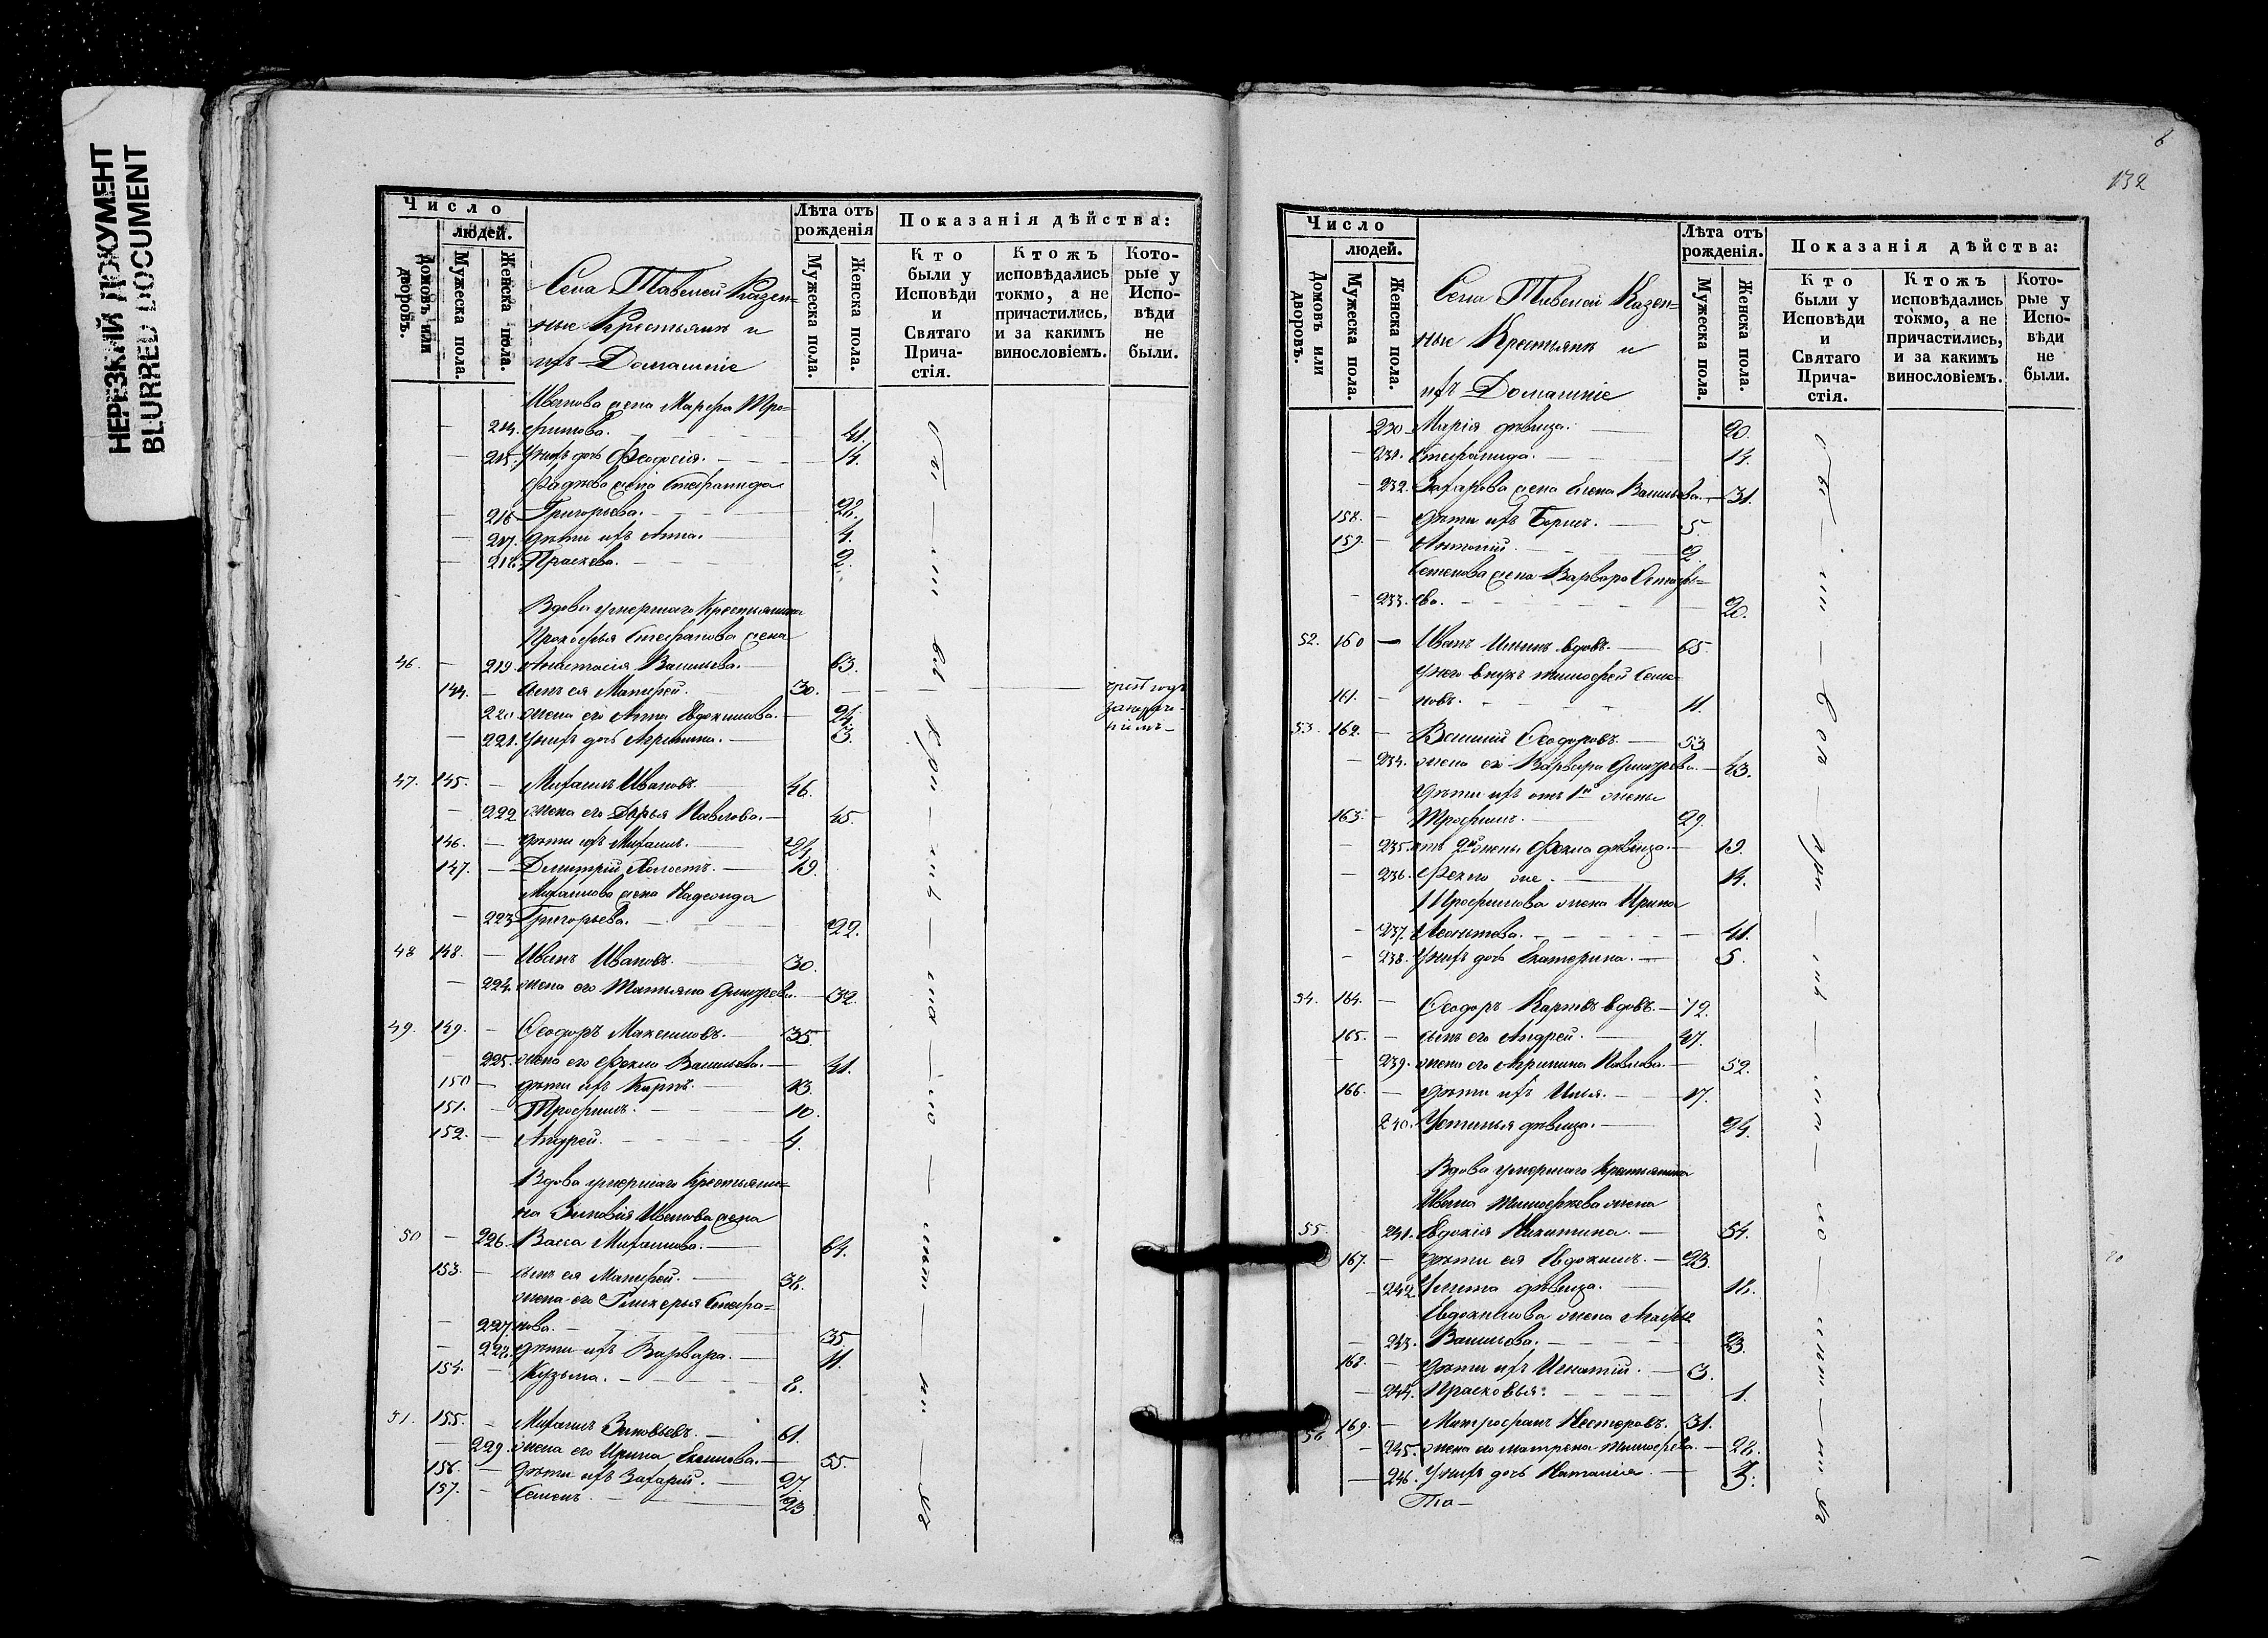 НЕРЕЗКИЙ ДОКУМЕНТ
BLURRED DOCUMENT
Число
людей.
Домовъ или дворовъ.
Мужеска пола.
Женска пола.
Села Тавелей Казен=
ные Крестьяне и
ихъ Домашніе
Лѣта отъ рожденія
Мужеска пола.
Женска пола.
Показанія дѣйства:
Кто были у Исповѣди и Святаго Причастія.
Ктожъ исповѣдались токмо, а не причастились, и за какимъ винословіемъ.
Которые у Исповѣди не были.
Иванова жена Марфа Тро=
214. фимова. 41.
215. У нихъ дочь Феодосія. 14.
жена Стефанида
216 Григорьева. 28.
217. Дѣти ихъ Анна. 4.
218. Праскева. 2.
Вдова умершаго Крестьянина
Прокофья Стефанова жена
46. 219. Анастасія Васильева. 63.
144. сынъ ея Матфей. 30.
220 жена его Анна Евдокимова. 24.
221. У нихъ дочь Агрипина. 3.
47. 145. Михаилъ Ивановъ. 46.
222 жена его Дарья Павлова. 45.
146. дѣти ихъ Михаилъ. 24.
147. Димитрій Холостъ. 19.
Михаилова жена Надежда
223 Григорьева. 22.
48 148. Иванъ Ивановъ. 30.
224. жена его Татьяна Дмитрева. 32.
49. 149. Ѳеодоръ Максимовъ. 35.
225. жена его Фекла Васильева. 41.
150 дѣти ихъ Карпъ. 13.
151. Трофимъ. 10.
152. Андрей. 4.
Вдова умершаго Крестьяни=
на Зиновія Иванова жена
50 226. Васса Михаилова. 64.
153. сынъ ея Матфей. 38.
жена его Гликерья Стефа=
227. нова. 35.
228. дѣти ихъ Варвара. 11.
154. Кузьма. 8.
51. 155. Михаилъ Зиновьевъ. 61.
229. жена его Ирина Екимова. 55.
156. дѣти ихъ Захарій. 27.
157. Семенъ. 23
6
132
Число
людей.
Домовъ или дворовъ.
Мужеска пола.
Женска пола.
Села Тавелей Казен=
ные Крестьяне и
ихъ Домашніе
Лѣта отъ рожденія.
Мужеска пола.
Женска пола.
Показанія дѣйства:
Кто были у Исповѣди и Святаго Причастія.
Ктожъ исповѣдались токмо, а не причастились, и за какимъ винословіемъ.
Которые у Исповѣди не были.
230 Марія дѣвица. 20.
231. Стефанида. 14.
232. Захарова жена Елена Васильева. 31.
158. дѣти ихъ Борисъ. 5.
159. Антоній. 2.
Семенова жена Варвара Астафь=
233. ева. 20.
52. 160 Иванъ Ильинъ вдовъ. 65.
У него внукъ Тимофей Семе
161. новъ. 11.
53. 162. Василій Ѳеодоровъ. 53
234. жена его Варвара Дмитрева. 43.
Дѣти ихъ отъ 1й жены
163. Трофимъ. 29.
235. отъ 2й жены Фекла дѣвица. 19.
236. Фекла же. 14.
Трофимова жена Ирина
237. Леонтьева. 41.
238. У нихъ дочь Екатерина. 5.
54. 164. Ѳеодоръ Карповъ вдовъ. 72.
165. сынъ его Андрей. 47.
239. жена его Агрипина Павлова. 52.
166. дѣти ихъ Илья. 17.
240. Устинья дѣвица. 24.
Вдова умершаго Крестьянина
Ивана Тимофеева жена
55 241. Евдокія Никитина. 54.
167. дѣти ея Евдокимъ. 23.
242 Улита дѣвица. 18.
Евдокимова жена Марфа
243. Васильева. 23.
168. дѣти ихъ Игнатій. 3.
244. Прасковья. 1.
56 169. Митрофанъ Несторовъ. 31.
245. жена его Матрена Тимофева. 28.
246. У нихъ дочь Наталія. 3.